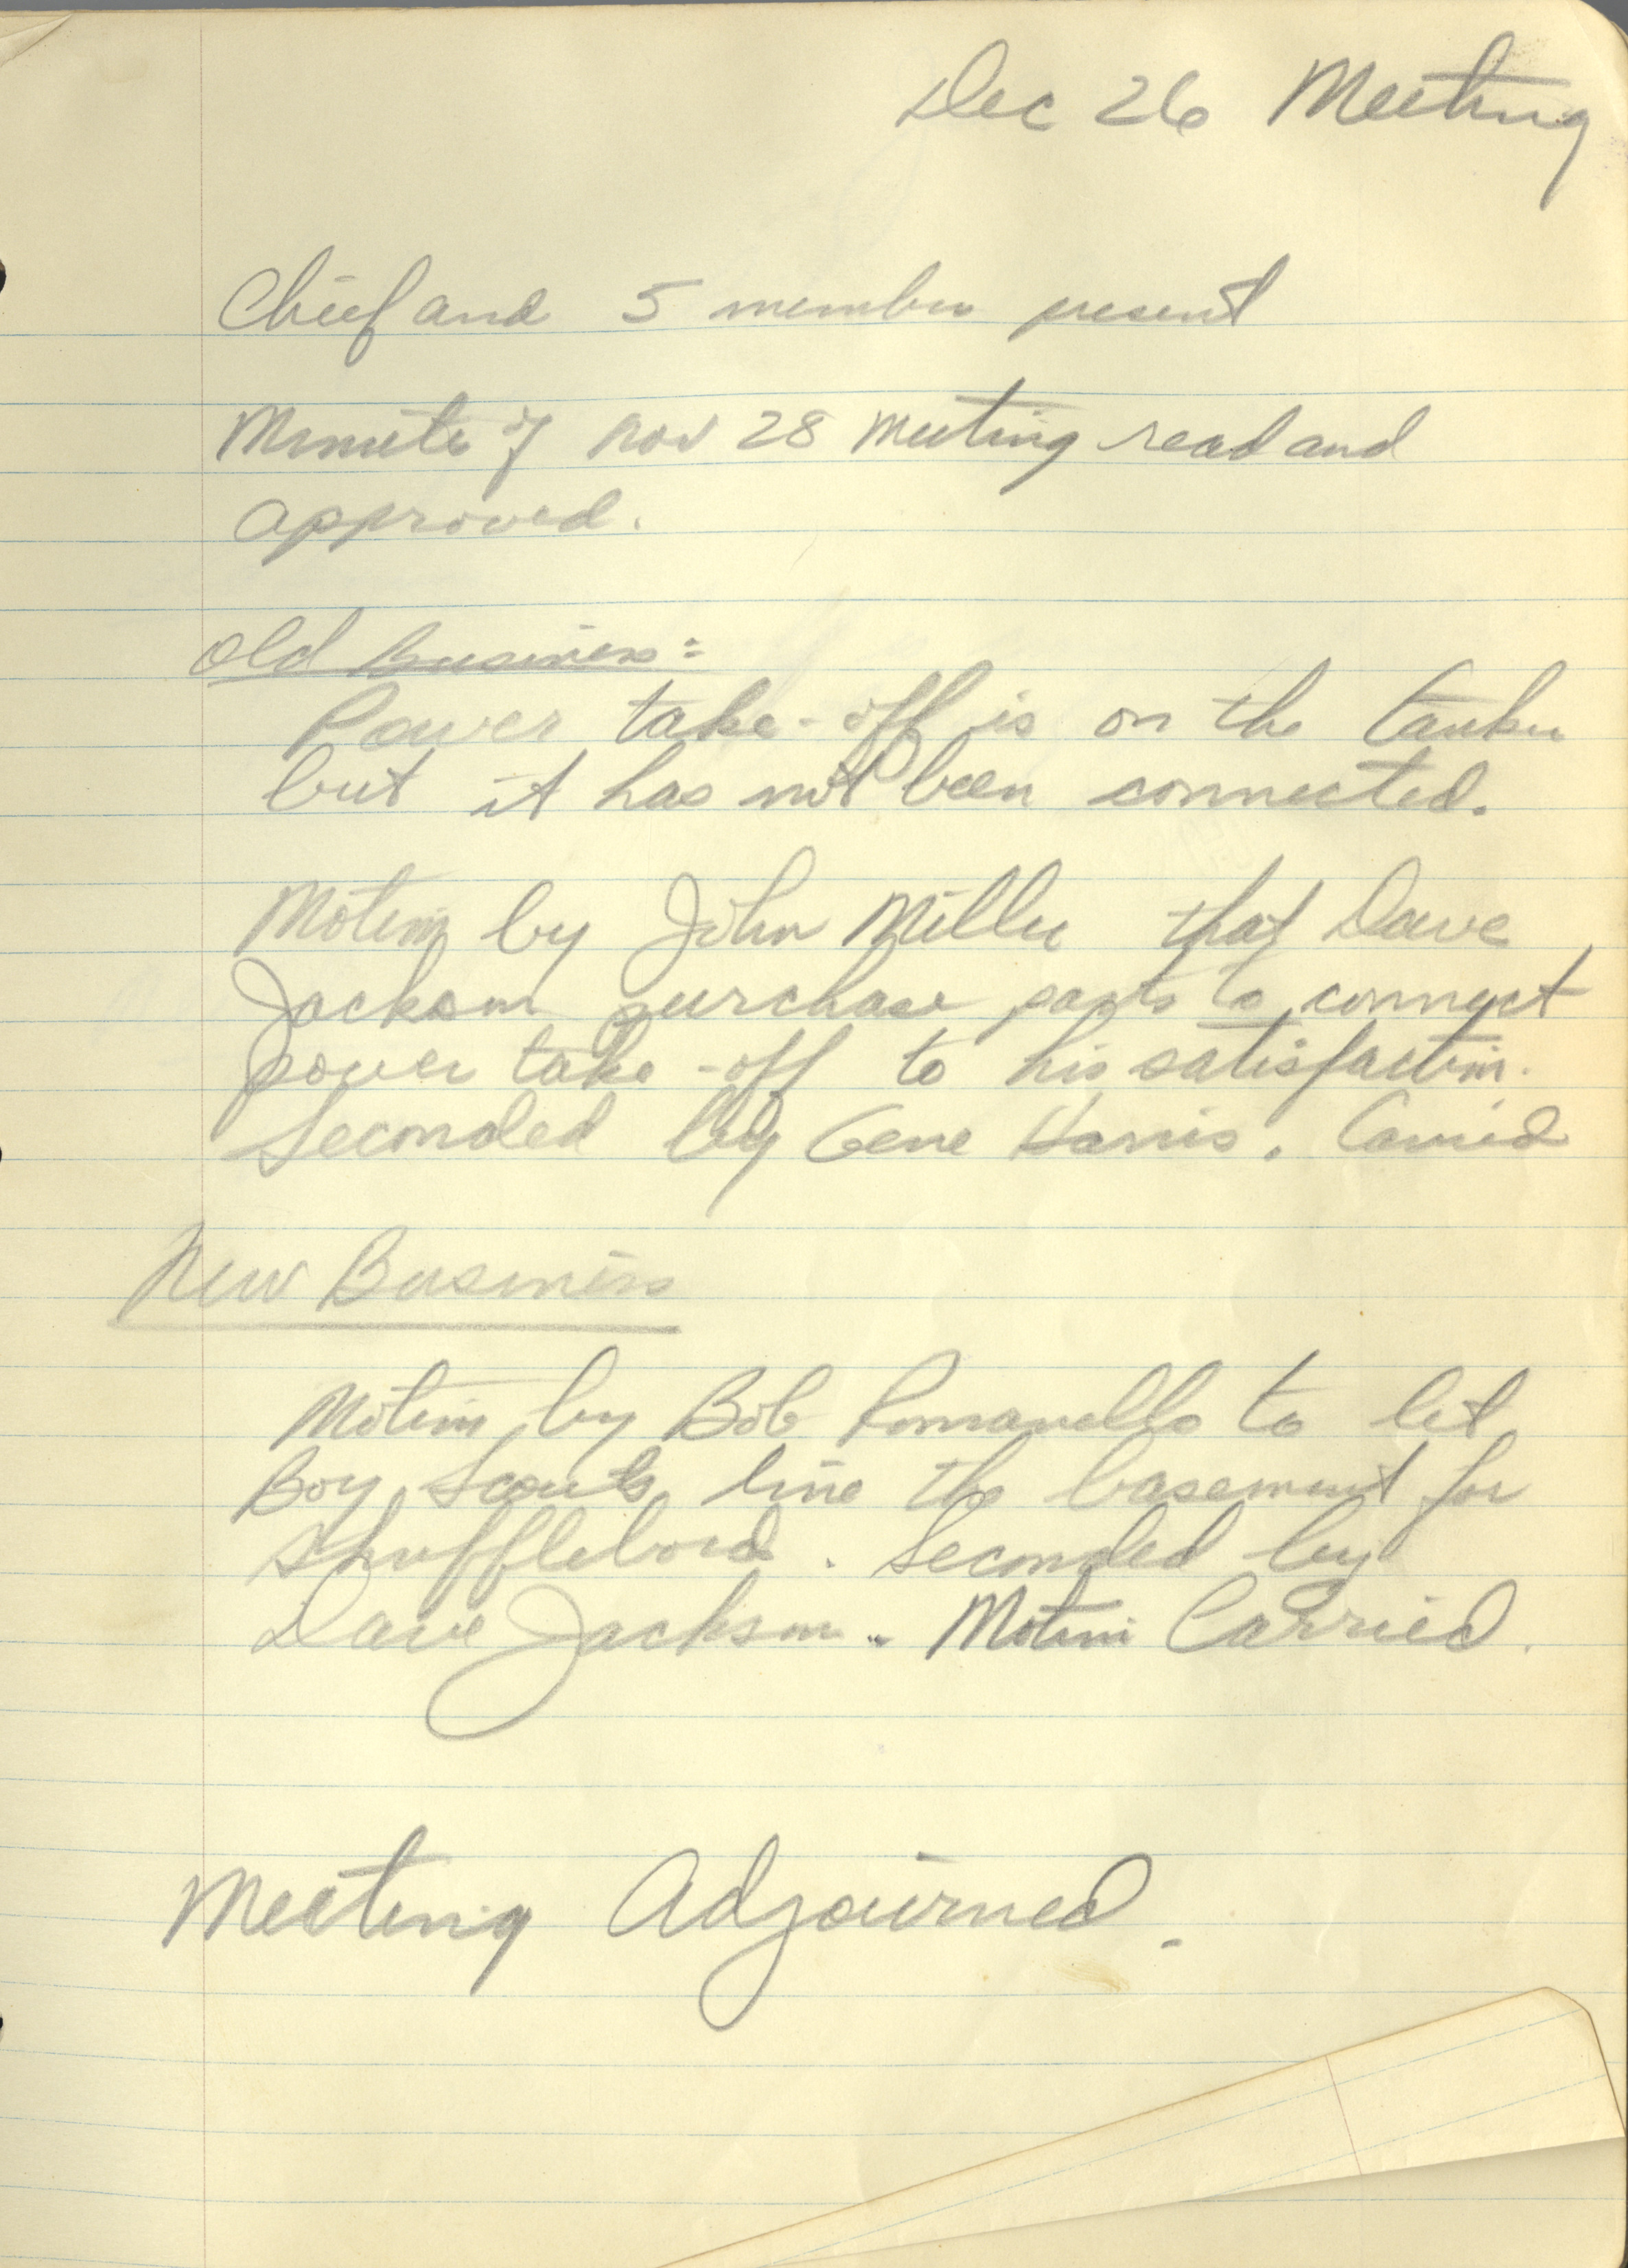 Dec 26 Meeting
Chief and 5 members present
Minutes of Nov 28 meeting read and
approved.
Old Business:
Power take-off is on the tanker
but it has not been connected.
Motion by John Miller that Dave
Jackson purchase parts to connect
power take-off to his satisfaction.
Seconded by Gene Harris. Carried
New Business
Motion by Bob Romanello to let
Boy Scouts line the basement for
shufflebord. Seconded by
Dave Jackson. Motion Carried.
Meeting Adjourned.